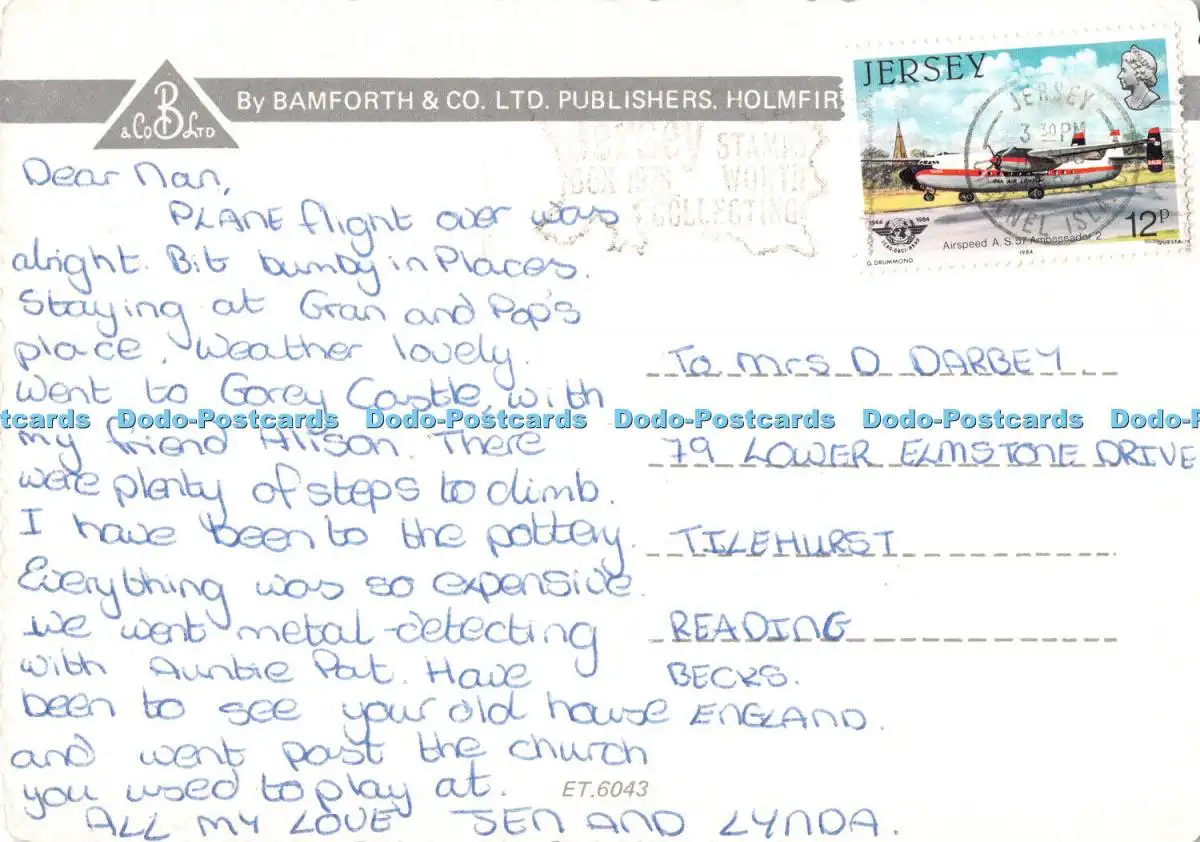 B
& Co LTD
By BAMFORTH & CO. LTD. PUBLISHERS. HOLMFIR
Jersey STAMPS
BOX 1978 WORTH
COLLECTING
JERSEY
JERSEY
3 30 PM
1944 1984
Airspeed A.S.57 Ambassador 2
12p
G. DRUMMOND
1984
Dear Nan,
PLANE flight over was
alright. Bit bumby in Places.
Staying at Gran and Pop's
place. Weather lovely.
Went to Gorey Castle, with
my friend Alison. There
were plenty of steps to climb.
I have been to the pottery.
Everything was so expensive.
we went metal-detecting
with Auntie Pat. Have
been to see your old house
and went past the church
you used to play at.
ALL MY LOVE JEN AND LYNDA.
To Mrs D DARBEY
79 LOWER ELMSTONE DRIVE
TILEHURST
READING
BECKS.
ENGLAND.
ET.6043
Dodo-Postcards Dodo-Postcards Dodo-Postcards Dodo-Postcards